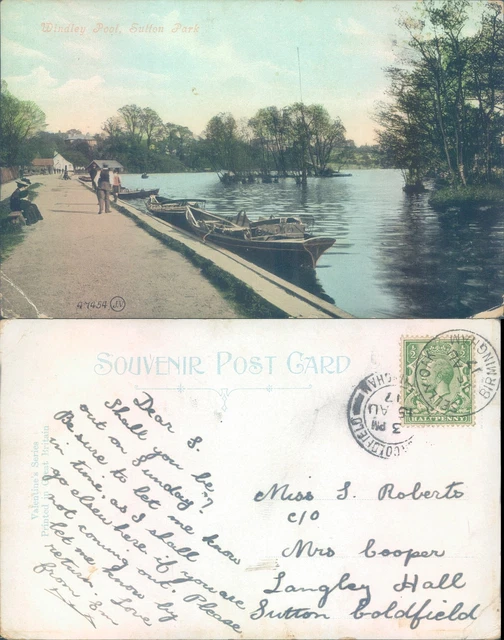 Windley Pool, Sutton Park
A 7454 JV
SOUVENIR POST CARD
Valentine's Series
Printed in Great Britain
Dear S.
Shall you be
out on Sunday
Be sure to let me know
in time, as I shall
go elsewhere if you are
not coming out. Please
let me know by
return. Love
from Em
Miss S. Roberts
c/o
Mrs Cooper
Langley Hall
Sutton Coldfield
HALFPENNY
BIRMINGHAM
3 PM
AU
17
COLDFIELD